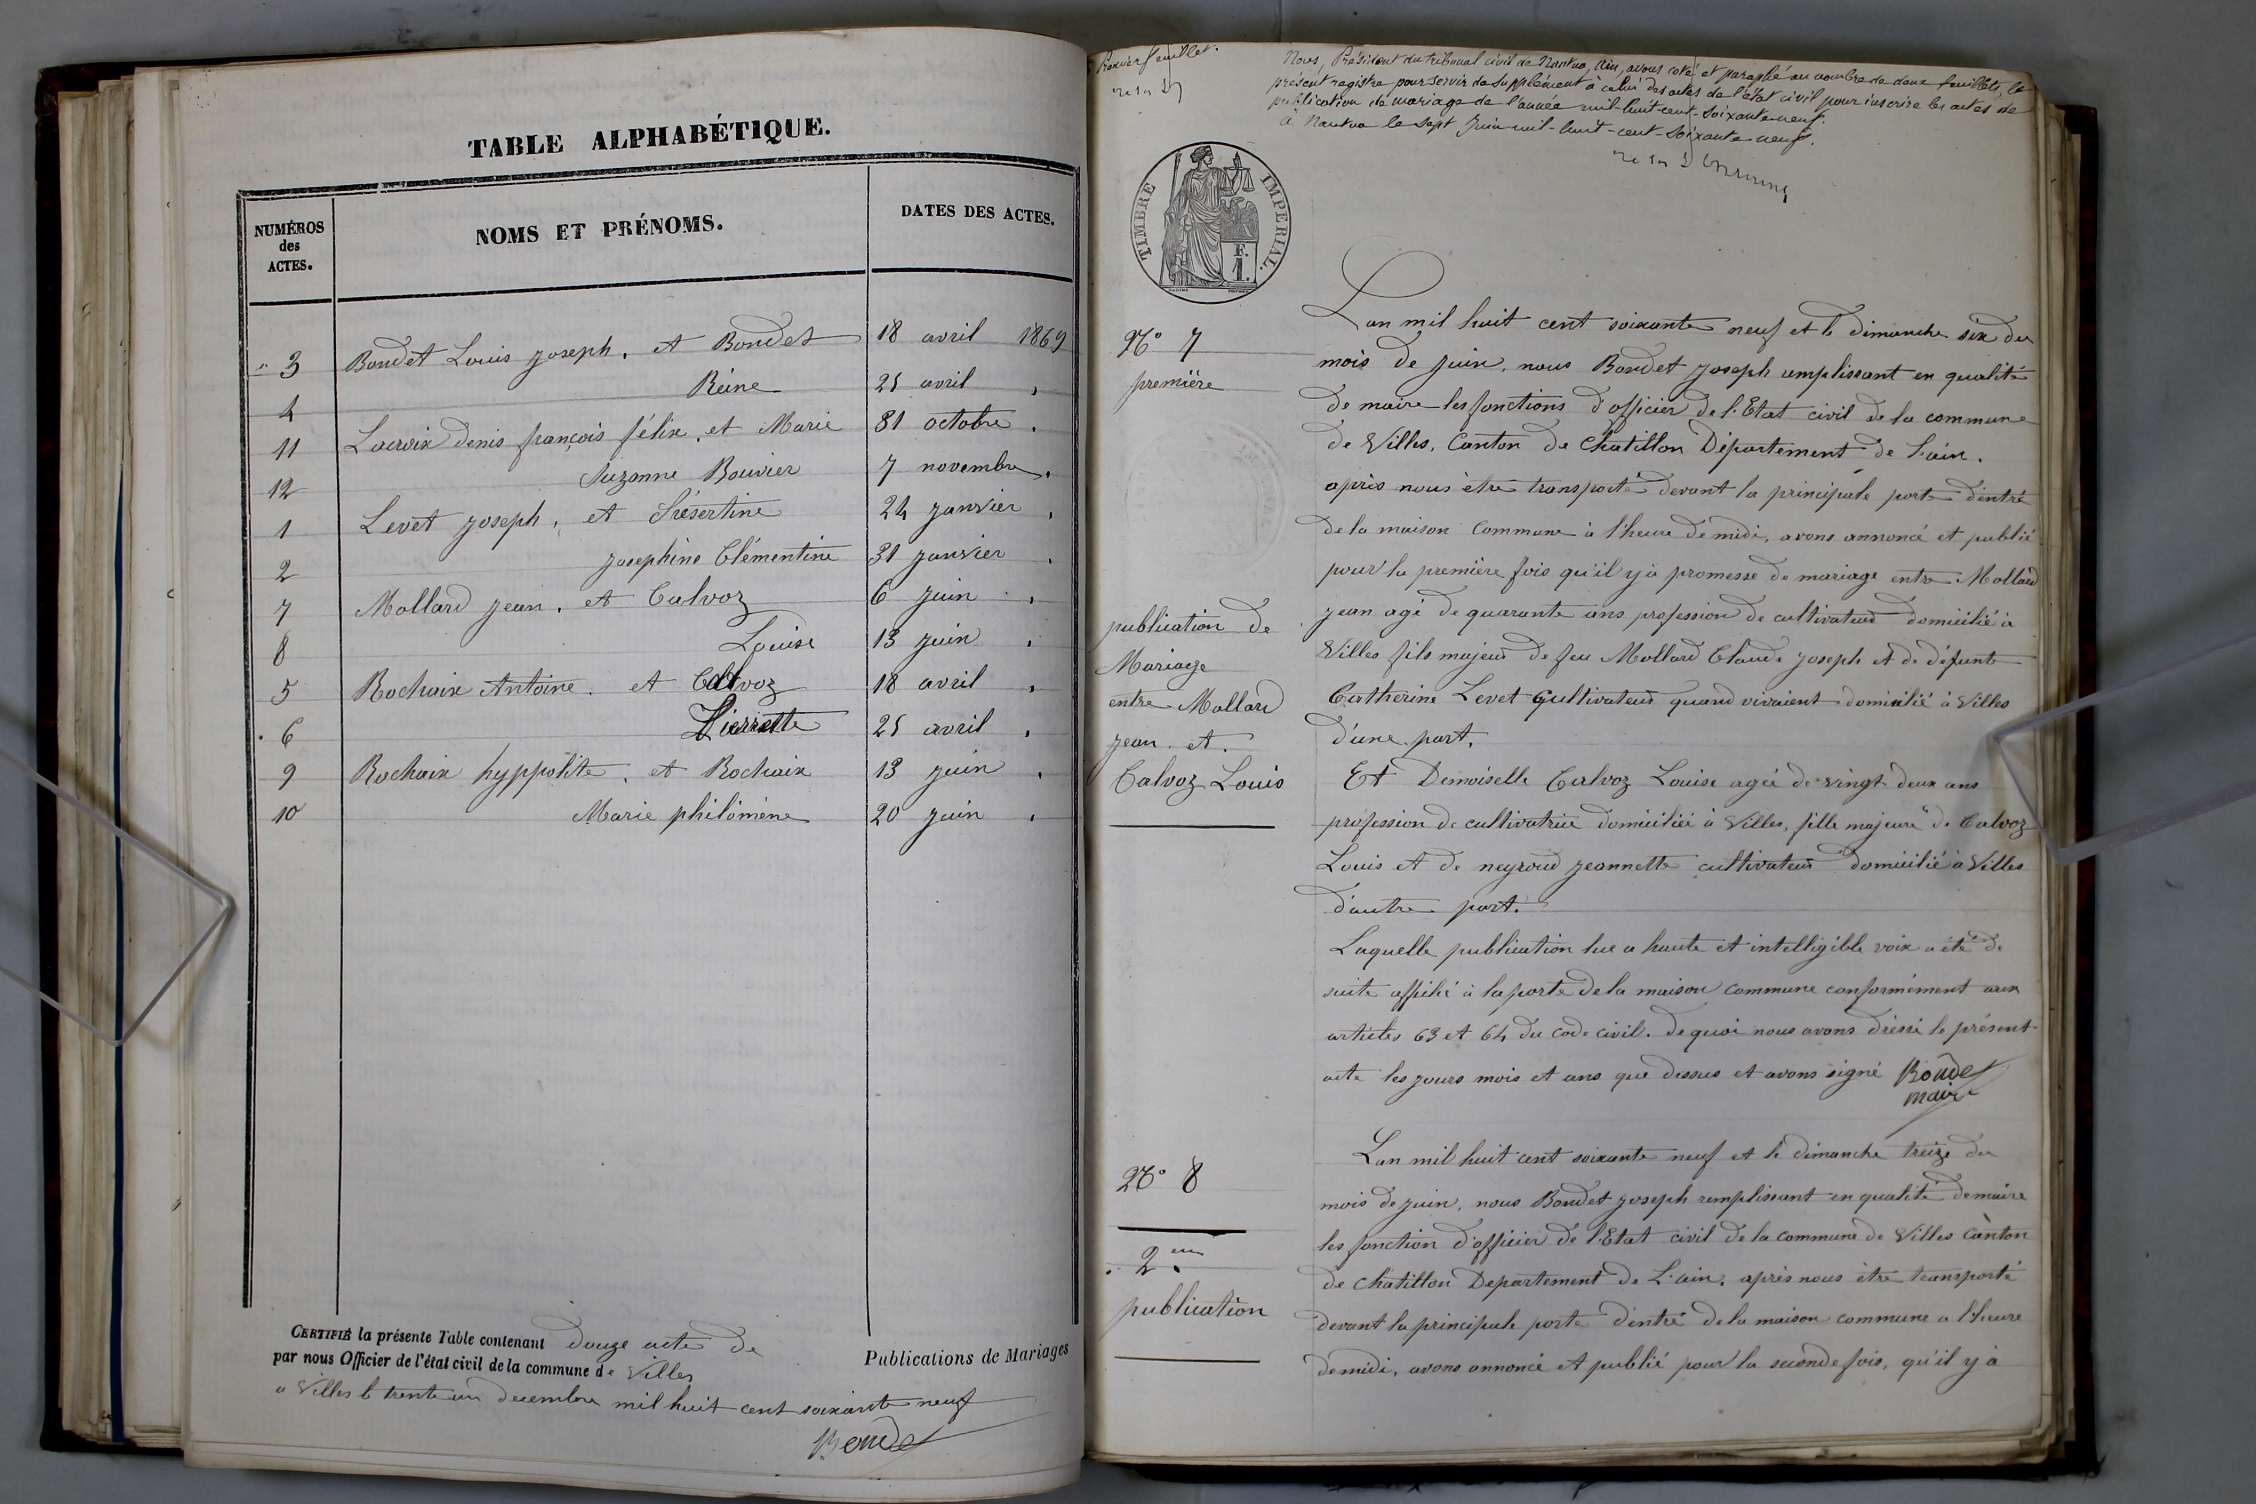 TABLE ALPHABÉTIQUE.
NUMÉROS
des
ACTES.
NOMS ET PRÉNOMS.
DATES DES ACTES.
3 Bondet Louis joseph. et Bondet 18 avril 1869
4 Réine 25 avril
11 Lacroix denis françois félix, et Marie 31 octobre
12 Suzanne Bouvier 7 novembre
1 Levet joseph, et Trésertine 24 janvier
2 josephine Clémentine 31 janvier
7 Mollard jean, et Calvoz 6 juin
8 Louise 13 juin
5 Rochaix Antoine. et Calvoz 18 avril
6 Pierrette 25 avril
9 Rochaix hyppolite, et Rochaix 13 juin
10 Marie philomène 20 juin
CERTIFIÉ la présente Table contenant douze acte de Publications de Mariages
par nous Officier de l'état civil de la commune de Villes
a Villes le trente un decembre mil huit cent soixante neuf
Bondet
Premier feuillet.
Nous, Président du tribunal civil de Nantua, Ain, avons coté et paraphé au nombre de deux feuillets, le
présent registre pour servir de supplément à celui des actes de l'état civil pour inscrire les actes de
publication de mariage de l'année mil-huit-cent-soixante-neuf.
à Nantua le sept Juin mil-huit-cent-soixante-neuf.
TIMBRE IMPÉRIAL.
F.
1.
No 7
première
publication de
Mariage
entre Mollard
jean et.
Calvoz Louis
Lan mil huit cent soixante neuf et le dimanche six du
mois de juin, nous Bondet joseph remplissant en qualité
de maire les fonctions d'officier de l'Etat civil de la commune
de Villes, Canton de Chatillon Département de l'ain.
après nous être transporté devant la principale porte d'entré
de la maison commune à l'heure de midi, avons annoncé et publié
pour la première fois qu'il y à promesse de mariage entre Mollard
jean agé de quarante ans profession de cultivateur domicilié à
Villes fils majeur de feu Mollard Claude joseph et de défunte
Catherine Levet Cultivateur quand vivaient domicilié à Villes
d'une part.
Et Demoiselle Calvoz Louise agée de vingt deux ans
profession de cultivatrice domiciliée à Villes, fille majeure de Calvoz
Louis et de neyroud jeannette cultivateur domicilié à Villes
d'autre part.
Laquelle publication lue a haute et intelligible voix a été de
suite affiché à la porte de la maison commune conformément aux
articles 63 et 64 du code civil. de quoi nous avons dréssé le présent
acte les jours mois et ans que dessus et avons signé Bondet
maire
No 8
2eme
publication
Lan mil huit cent soixante neuf et le dimanche treize du
mois de juin, nous Bondet joseph remplissant en qualité de maire
les fonction d'officier de l'Etat civil de la commune de Villes Canton
de Chatillon Departement de L'ain. après nous être transporté
devant la principale porte d'entré de la maison commune a l'heure
de midi, avons annoncé et publié pour la seconde fois, qu'il y à